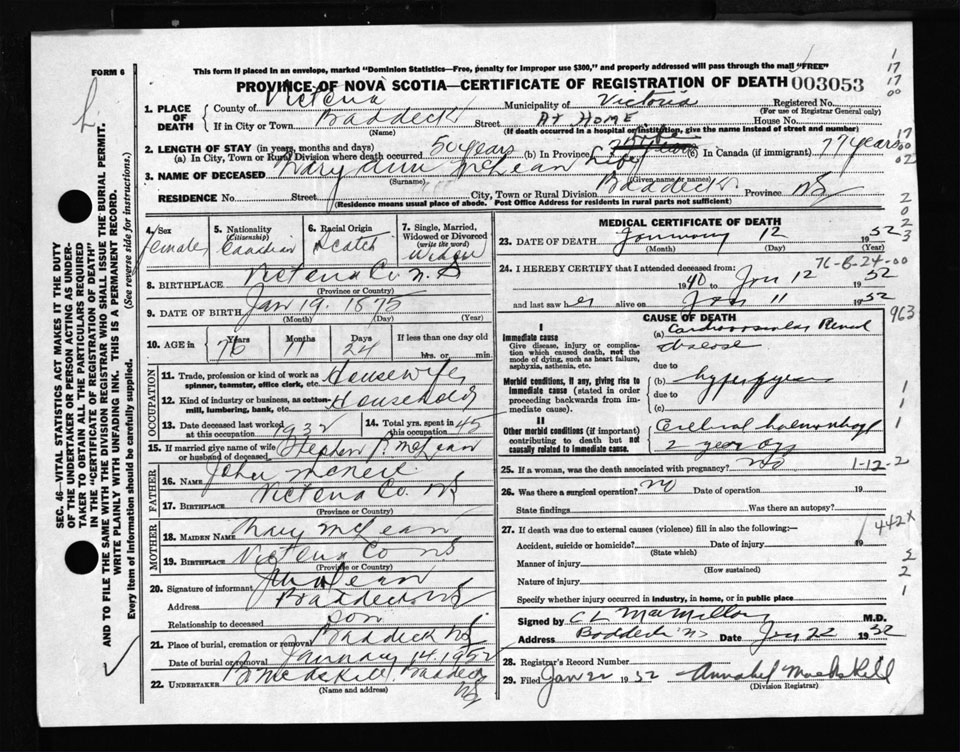 FORM 6
This form if placed in an envelope, marked "Dominion Statistics—Free, penalty for improper use $300," and properly addressed will pass through the mail "FREE"
PROVINCE OF NOVA SCOTIA—CERTIFICATE OF REGISTRATION OF DEATH 003053
1. PLACE OF DEATH County of Victoria Municipality of Victoria Registered No.
(For use of Registrar General only)
If in City or Town Baddeck Street At Home House No.
(Name) (If death occurred in a hospital or institution, give the name instead of street and number)
2. LENGTH OF STAY (in years, months and days)
(a) In City, Town or Rural Division where death occurred 50 years (b) In Province Life (c) In Canada (if immigrant) 77 years
3. NAME OF DECEASED Mary Ann McLean
(Surname) (Given name or names)
RESIDENCE No. Street City, Town or Rural Division Baddeck Province NS
(Residence means usual place of abode. Post Office Address for residents in rural parts not sufficient)
4. Sex Female
5. Nationality (Citizenship) Canadian
6. Racial Origin Scotch
7. Single, Married, Widowed or Divorced (write the word) Widow
8. BIRTHPLACE Victoria Co. N.S
(Province or Country)
9. DATE OF BIRTH Jan 19. 1875
(Month) (Day) (Year)
10. AGE in Years Months Days If less than one day old
76 11 24 hrs. or min.
OCCUPATION
11. Trade, profession or kind of work as spinner, teamster, office clerk, etc. Housewife
12. Kind of industry or business, as cotton-mill, lumbering, bank, etc. Household
13. Date deceased last worked at this occupation 1932
14. Total yrs. spent in this occupation 45
15. If married give name of wife or husband of deceased Stephen P. McLean
FATHER
16. NAME John McNeil
17. BIRTHPLACE Victoria Co. NS
(Province or Country)
MOTHER
18. MAIDEN NAME Mary McLean
19. BIRTHPLACE Victoria Co NS
(Province or Country)
20. Signature of informant
Address Baddeck NS
Relationship to deceased son
21. Place of burial, cremation or removal Baddeck NS
Date of burial or removal January 14, 1952
22. UNDERTAKER Baddeck NS
(Name and address)
MEDICAL CERTIFICATE OF DEATH
23. DATE OF DEATH January 12 1952
(Month) (Day) (Year)
76-B-24-00
24. I HEREBY CERTIFY that I attended deceased from:
1940 to Jan 12 1952
and last saw her alive on Jan 11 1952
963
CAUSE OF DEATH
I
Immediate cause
Give disease, injury or complication which caused death, not the mode of dying, such as heart failure, asphyxia, asthenia, etc.
(a) Cardiovascular Renal disease
due to
Morbid conditions, if any, giving rise to immediate cause (stated in order proceeding backwards from immediate cause).
(b)
due to
(c)
II
Other morbid conditions (if important) contributing to death but not causally related to immediate cause.
Cerebral haemorrhage
2 years ago
25. If a woman, was the death associated with pregnancy? no 1-12-2
26. Was there a surgical operation? no Date of operation 19
State findings Was there an autopsy?
442X
27. If death was due to external causes (violence) fill in also the following:—
Accident, suicide or homicide? Date of injury 19
(State which)
Manner of injury
(How sustained)
Nature of injury
Specify whether injury occurred in industry, in home, or in public place
Signed by C L MacMillan M.D.
Address Baddeck NS Date Jan 22 1952
28. Registrar's Record Number
29. Filed Jan 22 1952 Annabel MacAskill
(Division Registrar)
SEC. 46—VITAL STATISTICS ACT MAKES IT THE DUTY
OF THE UNDERTAKER OR PERSON ACTING AS UNDER-
TAKER TO OBTAIN ALL THE PARTICULARS REQUIRED
IN THE "CERTIFICATE OF REGISTRATION OF DEATH"
AND TO FILE THE SAME WITH THE DIVISION REGISTRAR WHO SHALL ISSUE THE BURIAL PERMIT.
WRITE PLAINLY WITH UNFADING INK. THIS IS A PERMANENT RECORD.
Every item of information should be carefully supplied. (See reverse side for instructions.)